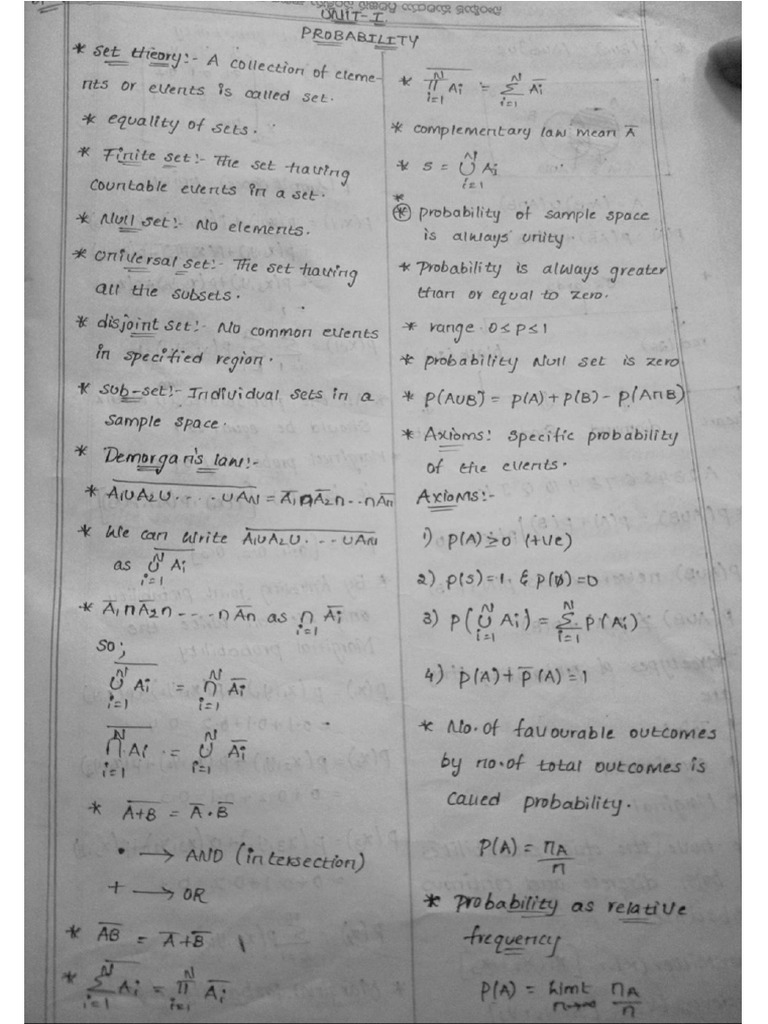 UNIT-I
PROBABILITY
* set theory:- A collection of eleme-
nts or events is called set.
* equality of sets.
* Finite set:- The set having
countable events in a set.
* Null set:- No elements.
* universal set:- The set having
all the subsets.
* disjoint set:- No common events
in specified region.
* sub-set:- Individual sets in a
sample space.
* Demorgan's law:-
* \overline{A₁∪A₂∪....∪A_N} = Ā₁∩Ā₂∩..∩Ān
* We can write \overline{A₁∪A₂∪...∪A_N}
as \overline{⋃_{i=1}^{N} Ai}
* Ā₁∩Ā₂∩....∩Ān as ∩_{i=1} Āi
so;
\overline{⋃_{i=1}^{N} Ai} = ⋂_{i=1}^{N} Āi
\overline{⋂_{i=1}^{N} Ai} = ⋃_{i=1}^{N} Āi
* \overline{A+B} = Ā·B̄
• → AND (intersection)
+ → OR
* \overline{AB} = Ā+B̄
* \overline{∑_{i=1}^{N} Ai} = ∏_{i=1}^{N} Āi
* \overline{∏_{i=1}^{N} Ai} = ∑_{i=1}^{N} Āi
* complementary law mean Ā
* s = ⋃_{i=1}^{N} Ai
* probability of sample space
is always unity
* Probability is always greater
than or equal to zero.
* range 0≤P≤1
* probability Null set is zero
* P(A∪B) = P(A)+P(B) - P(A∩B)
* Axioms: specific probability
of the events.
Axioms:-
1) P(A)≥0 (+ve)
2) P(s)=1. & P(ø)=0
3) P(⋃_{i=1}^{N} Ai) = ∑_{i=1}^{N} P(Ai)
4) P(A)+P̄(A)=1
* No. of favourable outcomes
by no. of total outcomes is
called probability.
P(A) = nA/n
* Probability as relative
frequency
P(A) = Limt_{n→∞} nA/n